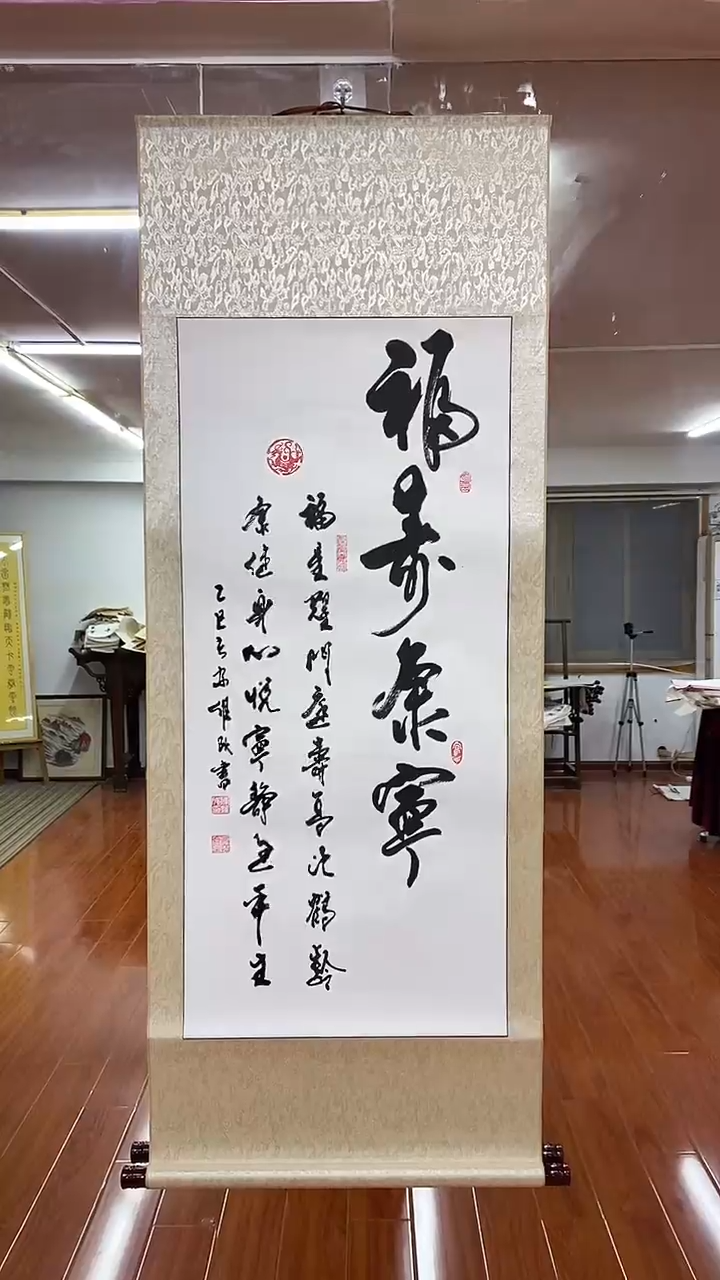 福寿康宁
福星耀门庭寿高比鹤龄
康健身心悦宁静画平生
乙巳
书